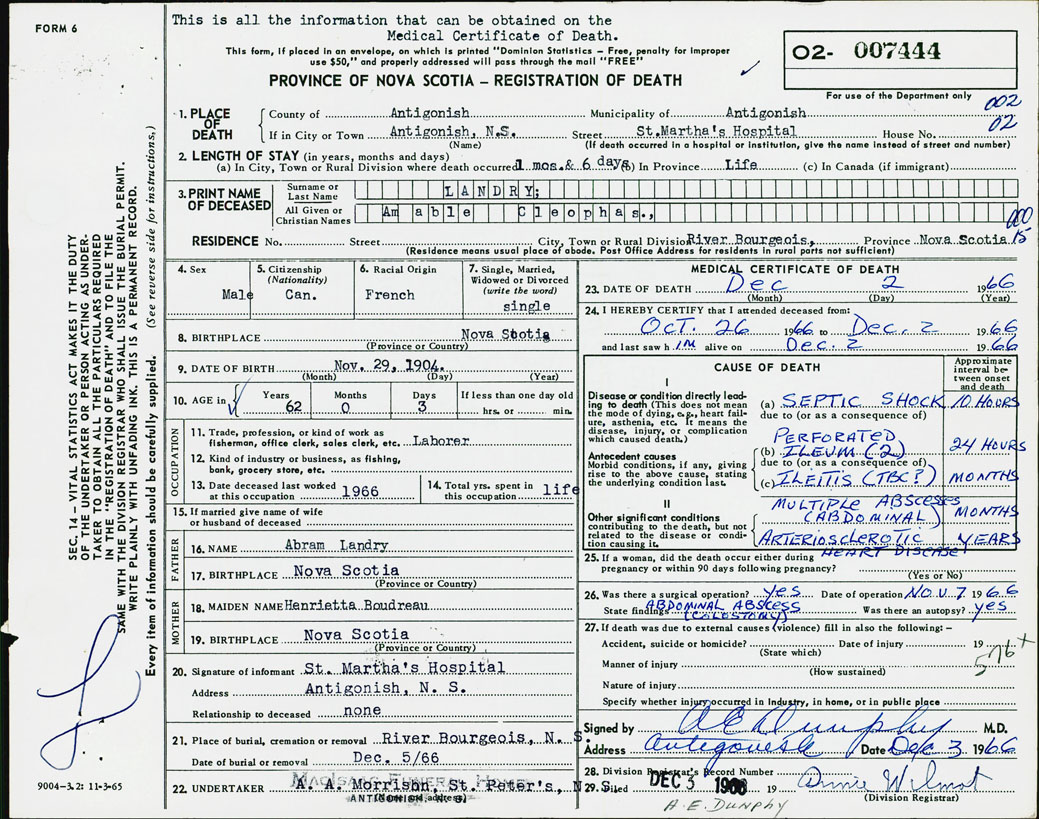 FORM 6
This is all the information that can be obtained on the
Medical Certificate of Death.
This form, if placed in an envelope, on which is printed "Dominion Statistics – Free, penalty for improper
use $50," and properly addressed will pass through the mail "FREE"
PROVINCE OF NOVA SCOTIA – REGISTRATION OF DEATH
O2- 007444
For use of the Department only
002
02
1. PLACE OF DEATH
County of Antigonish Municipality of Antigonish
If in City or Town Antigonish, N.S. Street St.Martha's Hospital House No.
(Name) (If death occurred in a hospital or institution, give the name instead of street and number)
2. LENGTH OF STAY (in years, months and days)
(a) In City, Town or Rural Division where death occurred 1 mos.& 6 days (b) In Province Life (c) In Canada (if immigrant)
3. PRINT NAME OF DECEASED
Surname or Last Name LANDRY;
All Given or Christian Names Am able Cleophas.,
000
15
RESIDENCE No. Street City, Town or Rural Division River Bourgeois, Province Nova Scotia
(Residence means usual place of abode. Post Office Address for residents in rural parts not sufficient)
4. Sex
Male
5. Citizenship
(Nationality)
Can.
6. Racial Origin
French
7. Single, Married,
Widowed or Divorced
(write the word)
single
8. BIRTHPLACE Nova Scotia
(Province or Country)
9. DATE OF BIRTH Nov. 29, 1904.
(Month) (Day) (Year)
10. AGE in Years 62 Months 0 Days 3 If less than one day old hrs. or min.
OCCUPATION
11. Trade, profession, or kind of work as
fisherman, office clerk, sales clerk, etc. Laborer
12. Kind of industry or business, as fishing,
bank, grocery store, etc.
13. Date deceased last worked
at this occupation 1966
14. Total yrs. spent in
this occupation life
15. If married give name of wife
or husband of deceased
FATHER
16. NAME Abram Landry
17. BIRTHPLACE Nova Scotia
(Province or Country)
MOTHER
18. MAIDEN NAME Henrietta Boudreau
19. BIRTHPLACE Nova Scotia
(Province or Country)
20. Signature of informant St. Martha's Hospital
Address Antigonish, N. S.
Relationship to deceased none
21. Place of burial, cremation or removal River Bourgeois, N. S.
Date of burial or removal Dec. 5/66
MacIsaac Funeral Home
22. UNDERTAKER A. A. Morrison, St. Peter's, N. S.
ANTIGONISH, N. S.
(Name and address)
MEDICAL CERTIFICATE OF DEATH
23. DATE OF DEATH Dec 2 1966
(Month) (Day) (Year)
24. I HEREBY CERTIFY that I attended deceased from:
Oct. 26 1966 to Dec. 2 1966
and last saw h im alive on Dec. 2 1966
CAUSE OF DEATH
Approximate
interval be-
tween onset
and death
I
Disease or condition directly lead-
ing to death (This does not mean
the mode of dying, e.g., heart fail-
ure, asthenia, etc. It means the
disease, injury, or complication
which caused death.)
(a) SEPTIC SHOCK 10 HOURS
due to (or as a consequence of)
Antecedent causes
Morbid conditions, if any, giving
rise to the above cause, stating
the underlying condition last.
PERFORATED
(b) ILEUM (2) 24 HOURS
due to (or as a consequence of)
(c) ILEITIS (TBC?) MONTHS
II
Other significant conditions
contributing to the death, but not
related to the disease or condi-
tion causing it.
MULTIPLE ABSCESSES
(ABDOMINAL) MONTHS
ARTERIOSCLEROTIC YEARS
HEART DISEASE
25. If a woman, did the death occur either during
pregnancy or within 90 days following pregnancy?
(Yes or No)
26. Was there a surgical operation? yes Date of operation NOV 7 1966
State findings ABDOMINAL ABSCESS Was there an autopsy? yes
(COLOSTOMY)
27. If death was due to external causes (violence) fill in also the following: –
Accident, suicide or homicide? Date of injury 19
(State which)
576+
Manner of injury
(How sustained)
Nature of injury
Specify whether injury occurred in industry, in home, or in public place
Signed by A E Dunphy M.D.
Address Antigonish Date Dec 3 1966
28. Division Registrar's Record Number
29. Filed DEC 3 1966 19
(Division Registrar)
A.E. DUNPHY
SEC. 14 – VITAL STATISTICS ACT MAKES IT THE DUTY
OF THE UNDERTAKER OR PERSON ACTING AS UNDER-
TAKER TO OBTAIN ALL THE PARTICULARS REQUIRED
IN THE "REGISTRATION OF DEATH" AND TO FILE THE
SAME WITH THE DIVISION REGISTRAR WHO SHALL ISSUE THE BURIAL PERMIT.
WRITE PLAINLY WITH UNFADING INK. THIS IS A PERMANENT RECORD.
Every item of information should be carefully supplied. (See reverse side for instructions.)
9004–3.2: 11-3-65